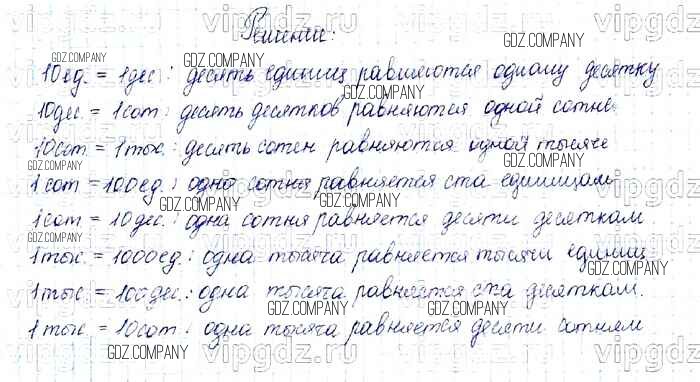 Решение:
10ед. = 1дес.: десять единиц равняются одному десятку
10дес. = 1сот: десять десятков равняются одной сотне
10сот = 1тыс.: десять сотен равняются одной тысяче
1сот = 100ед.: одна сотня равняется ста единицам
1сот = 10дес.: одна сотня равняется десяти десяткам.
1тыс. = 1000ед.: одна тысяча равняется тысячи единиц
1тыс. = 100дес.: одна тысяча равняется ста десяткам.
1тыс. = 10сот: одна тысяча равняется десяти сотням
GDZ.COMPANY
vipgdz.ru